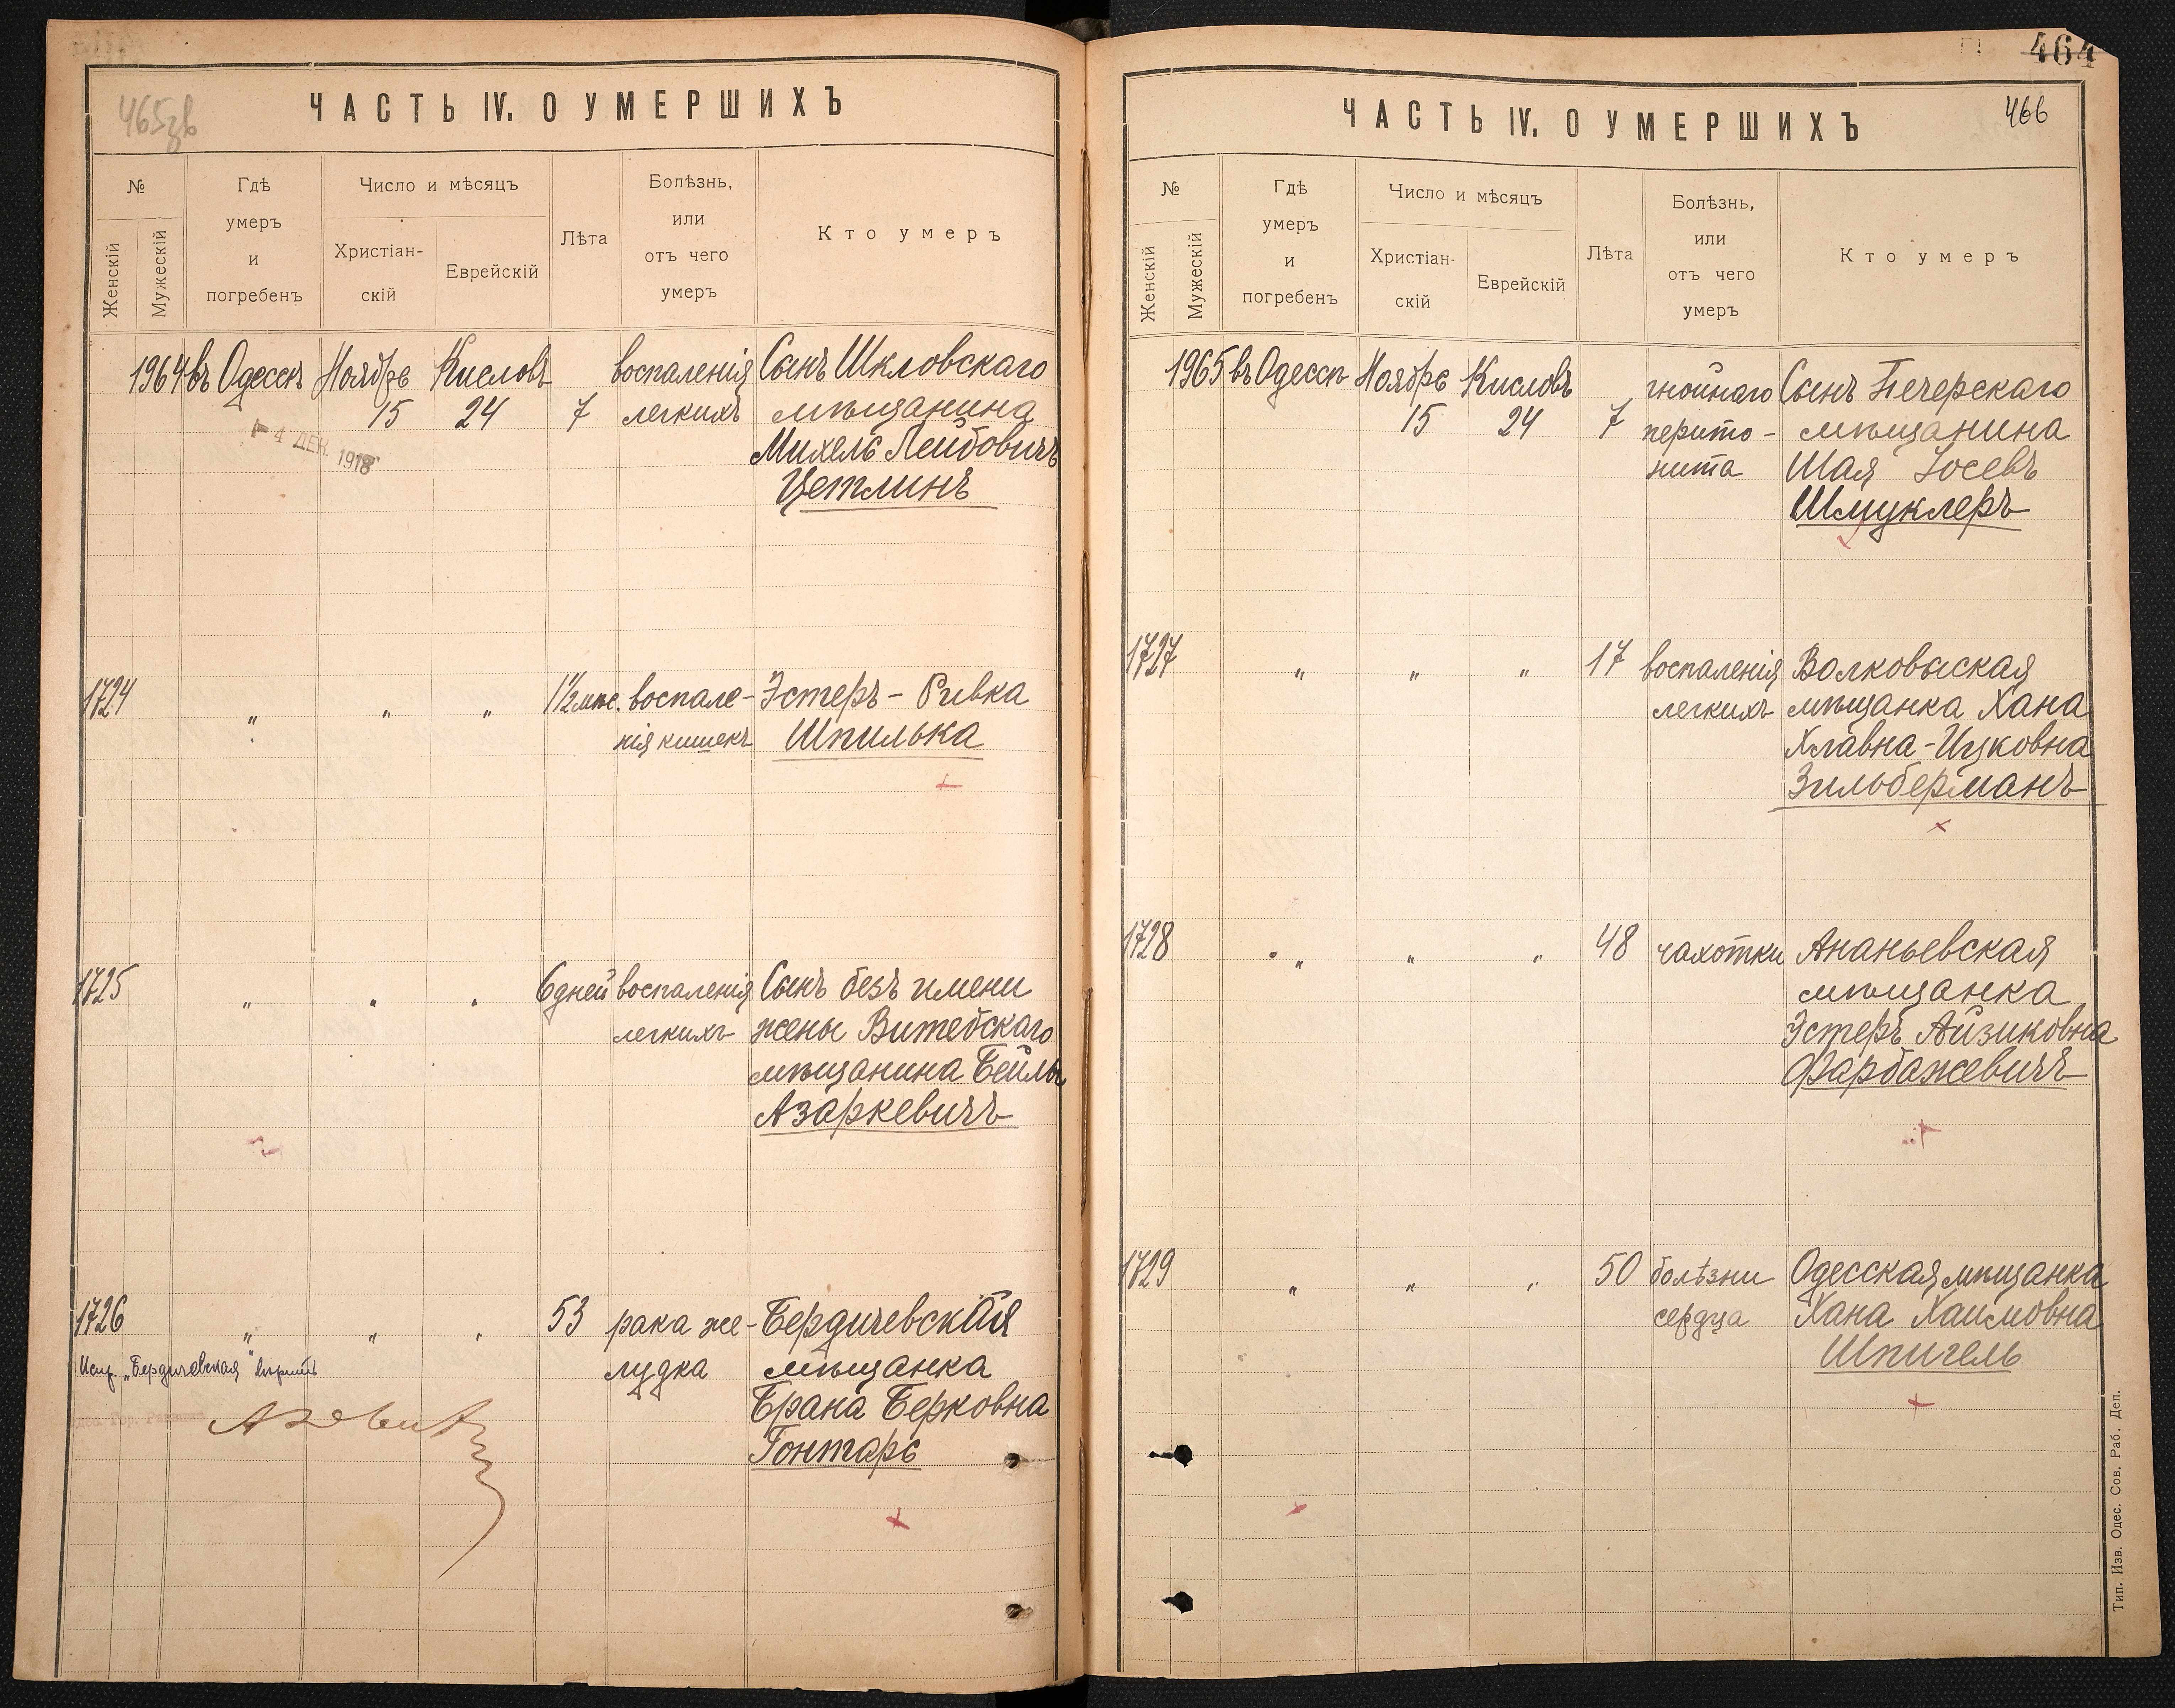 465зв
ЧАСТЬ IV. О УМЕРШИХЪ
№
Женскій
Мужескій
Гдѣ
умеръ
и
погребенъ
Число и мѣсяцъ
Христіан-
скій
Еврейскій
Лѣта
Болѣзнь,
или
отъ чего
умеръ
Кто умеръ
1964 въ Одессѣ Ноябрь Кисловъ воспаленія Сынъ Шкловскаго
15 24 7 легкихъ мѣщанина
4 ДЕК. 1918
Михель Лейбовичъ
Цетлинъ
1724 " " " 1½ мѣс. воспале- Эстеръ - Ривка
нія кишекъ Шпилька
1725 " " " 6 дней воспаленія Сынъ безъ имени
легкихъ жены Витебскаго
мѣщанина Бейлы
Азаркевичъ
1726 " " " 53 рака же- Бердичевская
Испр. „Бердичевская" вѣрить
лудка мѣщанка
Брана Берковна
Гонтарь
464
466
ЧАСТЬ IV. О УМЕРШИХЪ
№
Женскій
Мужескій
Гдѣ
умеръ
и
погребенъ
Число и мѣсяцъ
Христіан-
скій
Еврейскій
Лѣта
Болѣзнь,
или
отъ чего
умеръ
Кто умеръ
1965 въ Одессѣ Ноябрь Кисловъ гнойнаго Сынъ Печерскаго
15 24 7 перито- мѣщанина
нита Шая Іосевъ
Шмуклеръ
1727 " " " 17 воспаленія Волковыская
легкихъ мѣщанка Хана
Хлавна-Ицковна
Зильберманъ
1728 " " " 48 чахотки Ананьевская
мѣщанка
Эстеръ Айзиковна
Фарбажевичъ
1729 " " " 50 болѣзни Одесская мѣщанка
сердца Хана Хаимовна
Шпигель
Тип. Изв. Одес. Сов. Раб. Деп.